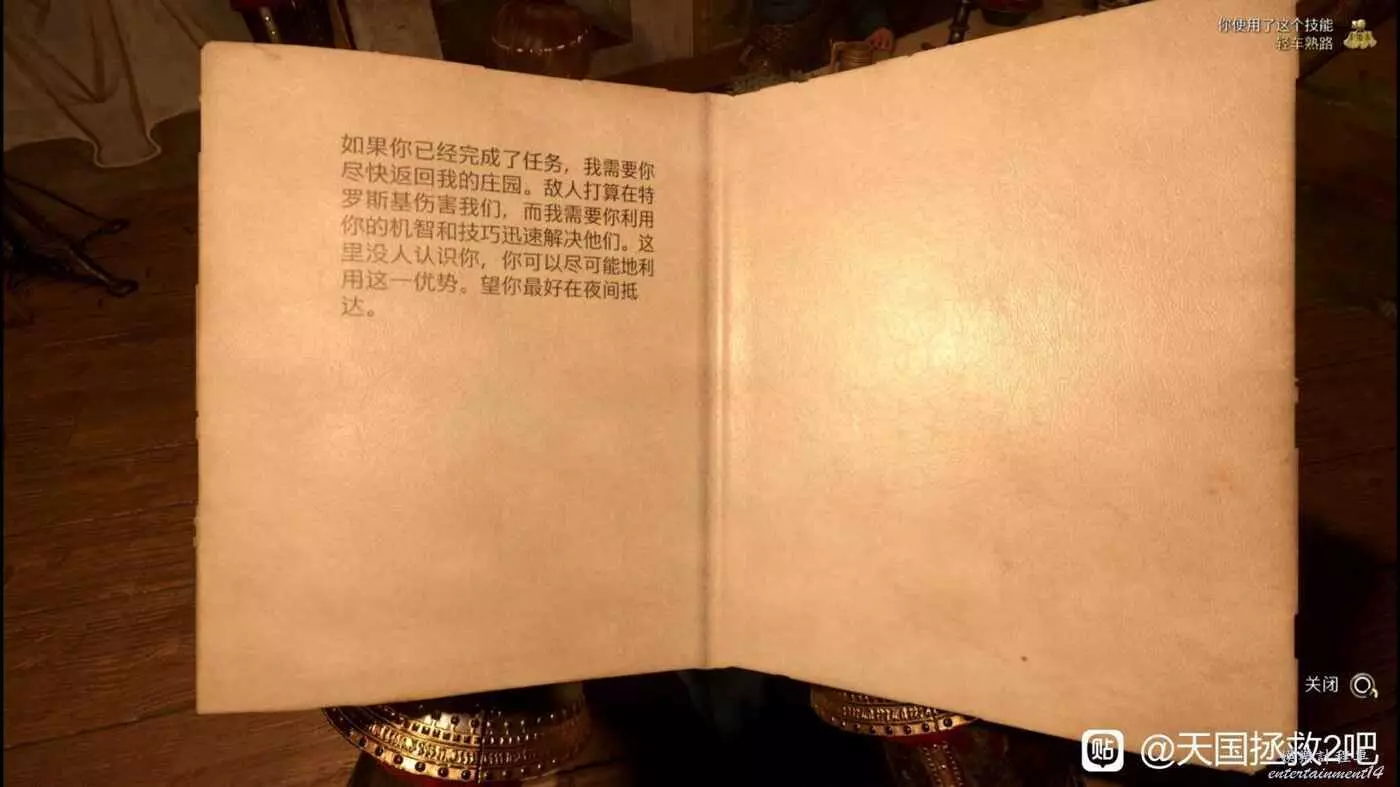 你使用了这个技能
轻车熟路
如果你已经完成了任务，我需要你
尽快返回我的庄园。敌人打算在特
罗斯基伤害我们，而我需要你利用
你的机智和技巧迅速解决他们。这
里没人认识你，你可以尽可能地利
用这一优势。望你最好在夜间抵
达。
关闭
贴 @天国拯救2吧
entertainment14